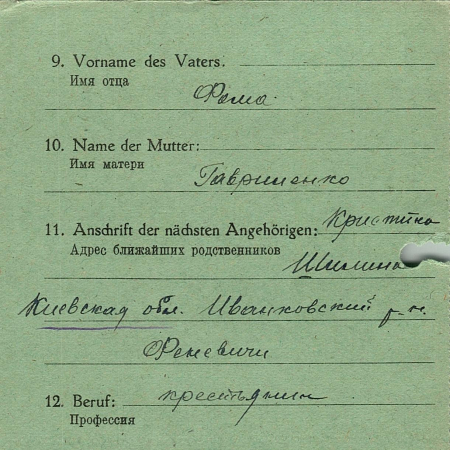 9. Vorname des Vaters.
Имя отца
Фома
10. Name der Mutter:
Имя матери
Гавриленко
11. Anschrift der nächsten Angehörigen: Кристина
Адрес ближайших родственников
Шилина
Киевская обл. Иванковский р-н.
Феневичи
12. Beruf: крестьянин
Профессия